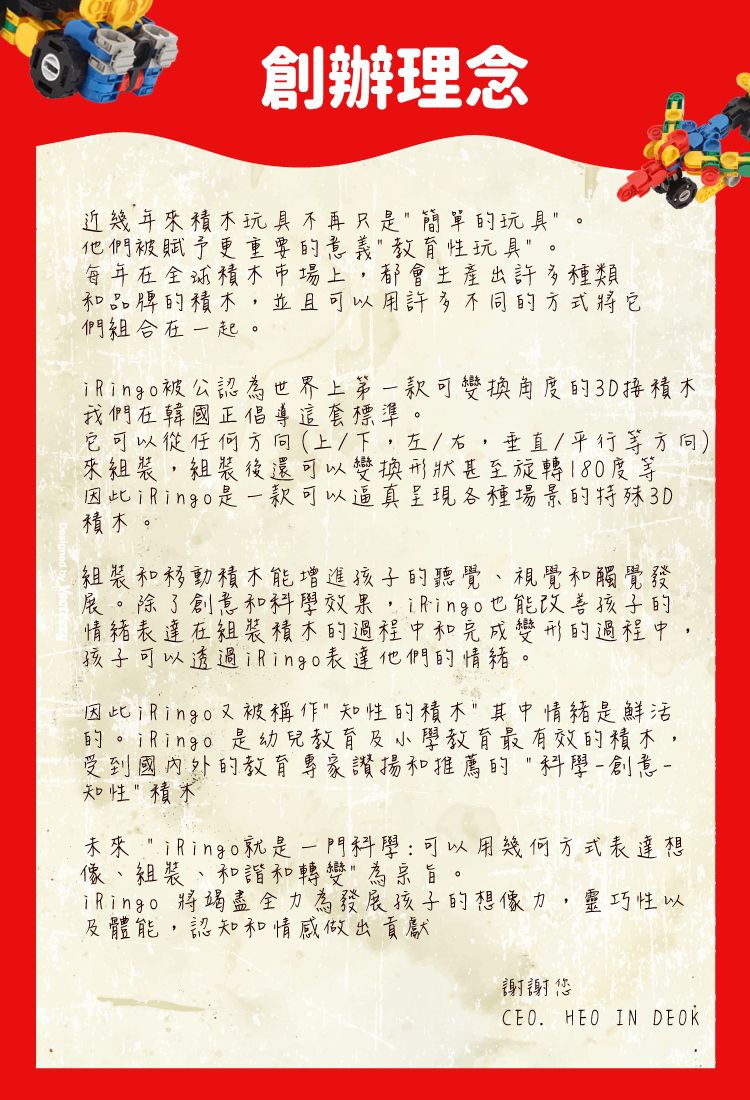 創辦理念
近幾年來積木玩具不再只是"簡單的玩具"。
他們被賦予更重要的意義"教育性玩具"。
每年在全球積木市場上，都會生產出許多種類
和品牌的積木，並且可以用許多不同的方式將它
們組合在一起。
iRingo被公認為世界上第一款可變換角度的3D接積木
我們在韓國正倡導這套標準。
它可以從任何方向(上/下，左/右，垂直/平行等方向)
來組裝，組裝後還可以變換形狀甚至旋轉180度等
因此iRingo是一款可以逼真呈現各種場景的特殊3D
積木。
組裝和移動積木能增進孩子的聽覺、視覺和觸覺發
展。除了創意和科學效果，iRingo也能改善孩子的
情緒表達在組裝積木的過程中和完成變形的過程中，
孩子可以透過iRingo表達他們的情緒。
因此iRingo又被稱作"知性的積木"其中情緒是鮮活
的。iRingo 是幼兒教育及小學教育最有效的積木，
受到國內外的教育專家讚揚和推薦的 "科學-創意-
知性"積木
未來 "iRingo就是一門科學:可以用幾何方式表達想
像、組裝、和諧和轉變"為宗旨。
iRingo 將竭盡全力為發展孩子的想像力，靈巧性以
及體能，認知和情感做出貢獻
謝謝您
CEO. HEO IN DEOK
Designed by Vecteezy